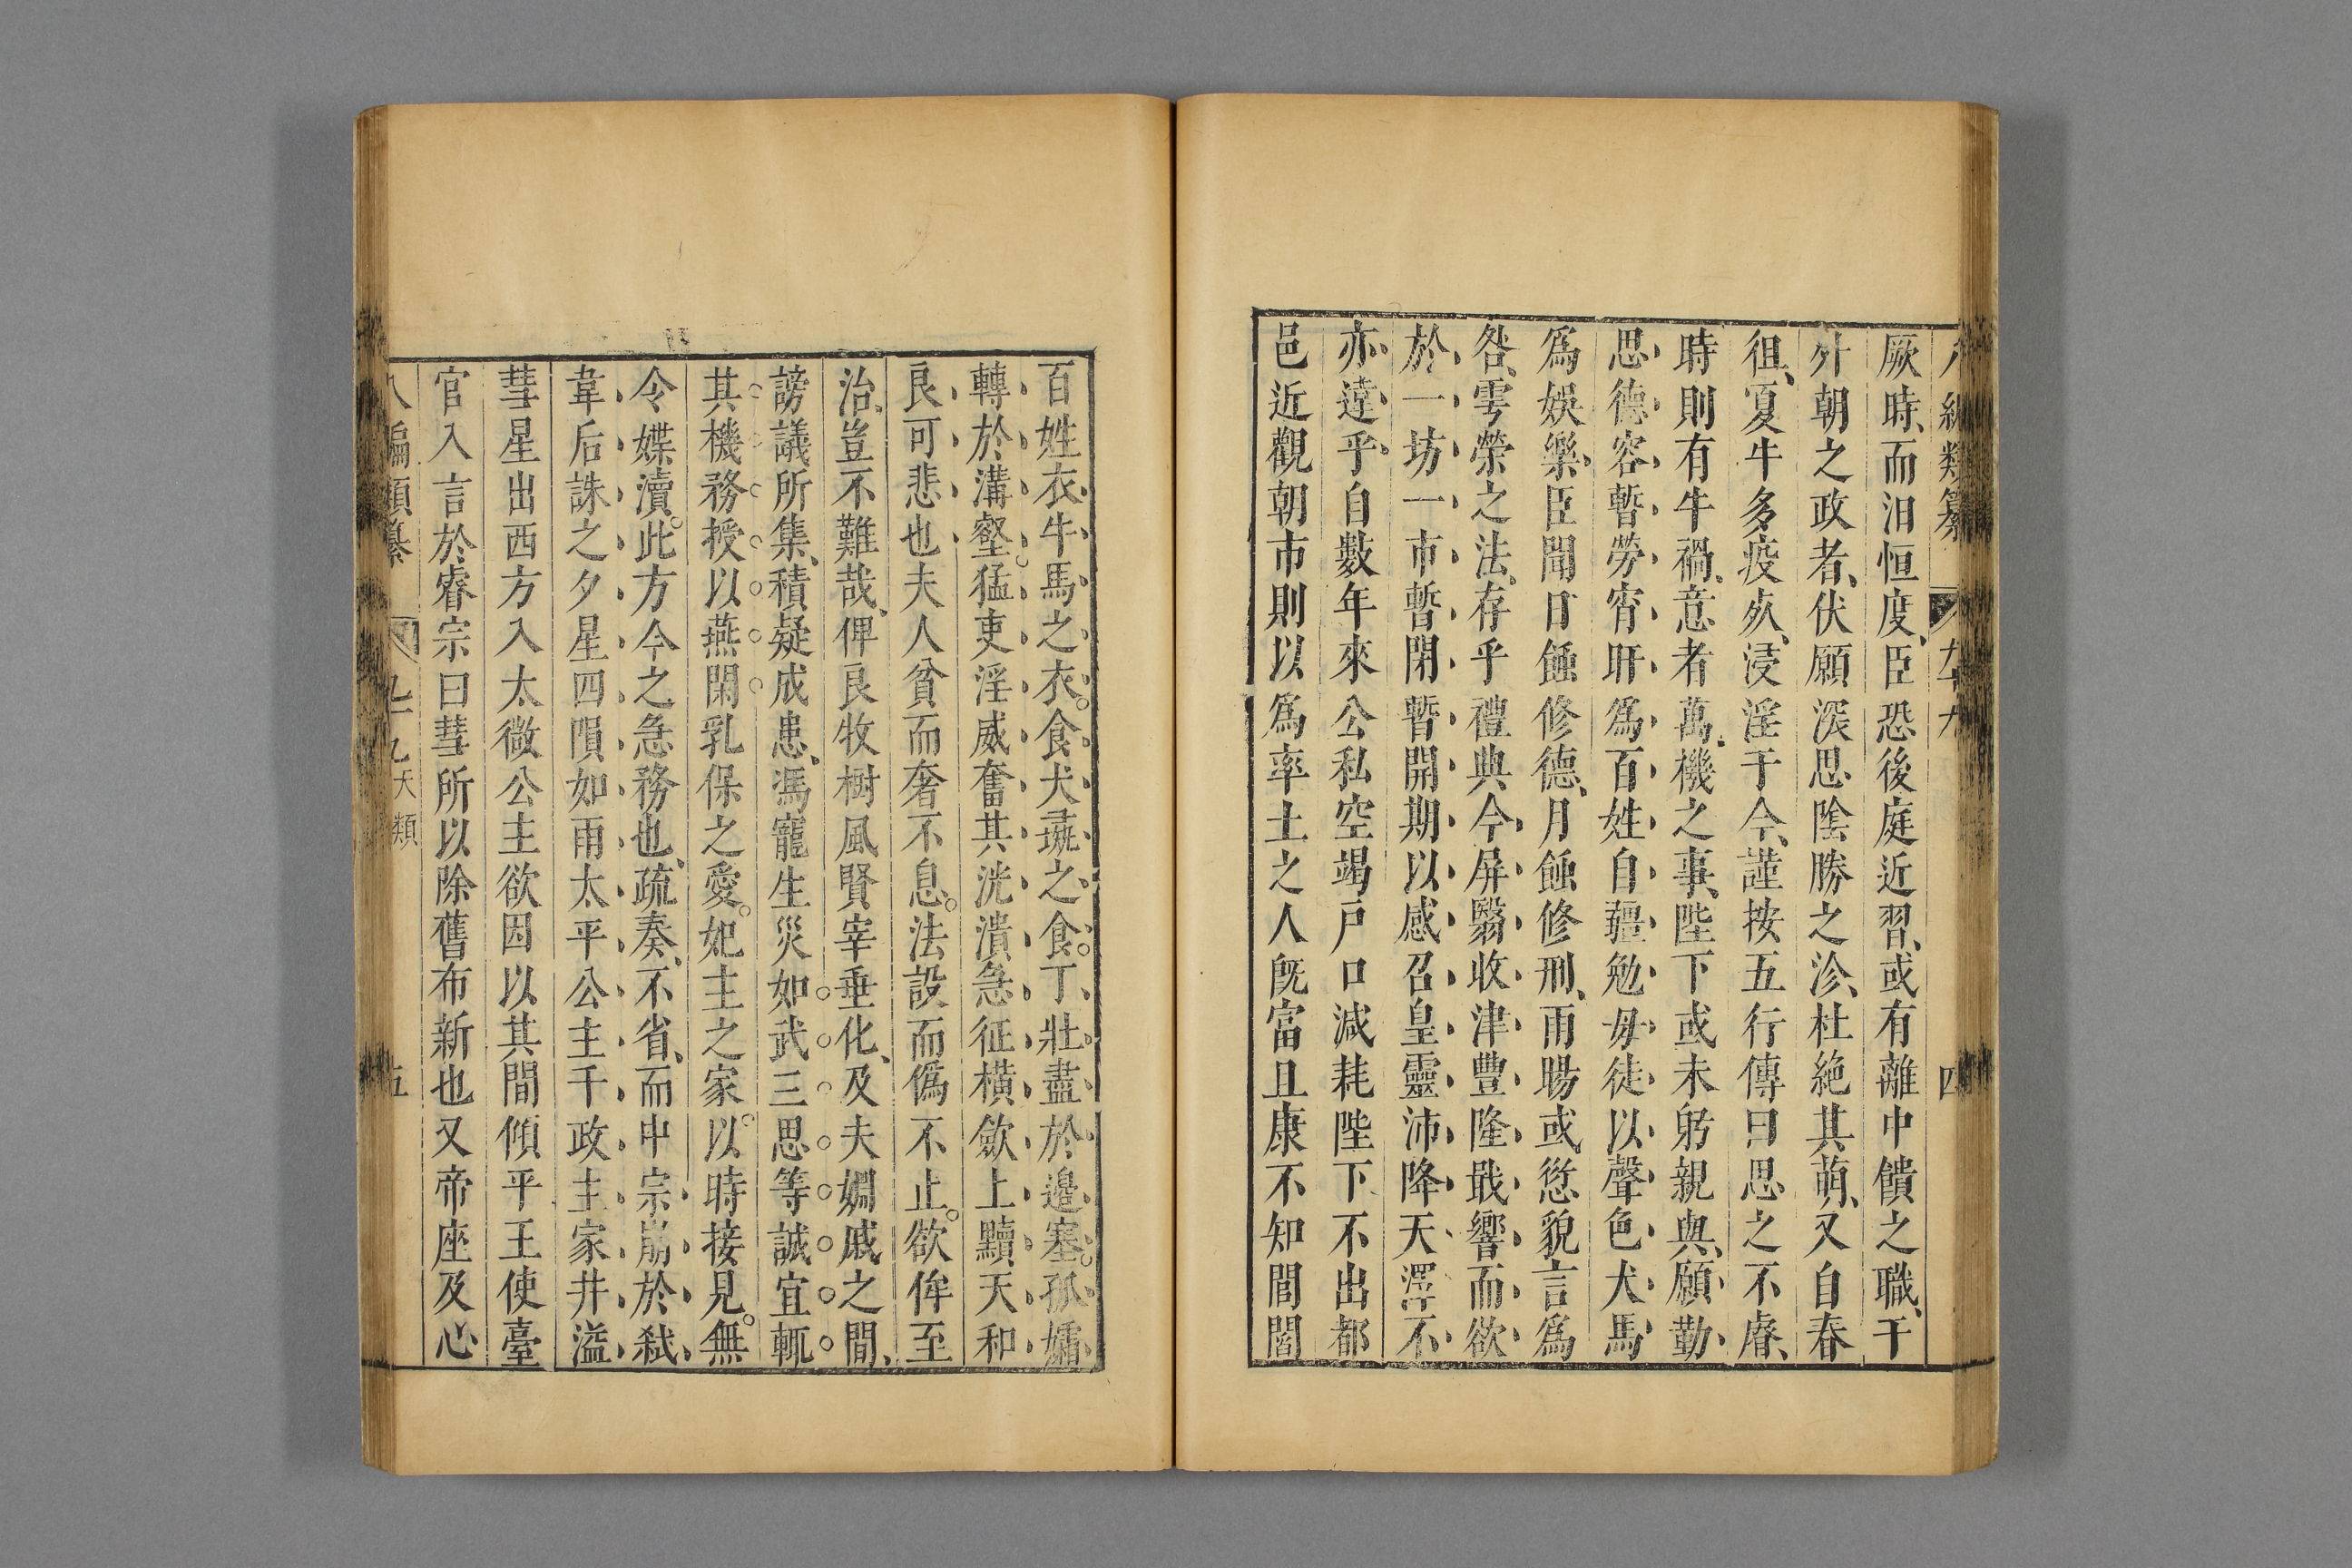 八編類纂 卷九十九 四
厥時、而汨恒度、臣恐後庭近習、或有離中饋之職、干
外朝之政者、伏願深思陰勝之沴、杜絶其萌、又自春
徂夏、牛多疫死、浸淫于今、謹按五行傳曰思之不睿、
時則有牛禍、意者萬機之事、陛下或未躬親與、願勤
思德容、暫勞宵旰、爲百姓自彊、勉毋徒以聲色犬馬
爲娛樂、臣聞日蝕修德、月蝕修刑、雨暘或愆貌言爲
咎、雩禜之法、存乎禮典今屏翳收津豐隆戢響而欲
於一坊一市暫閉暫開期以感召皇靈沛降天澤不
亦遠乎自數年來公私空竭戶口減耗陛下不出都
邑近觀朝市則以爲率土之人旣富且康不知閭閻
百姓衣牛馬之衣。食犬彘之食。丁壯盡於邊塞。孤孀
轉於溝壑。猛吏淫威奮其洸潰急征橫斂上黷天和
良可悲也夫人貧而奢不息。法設而僞不止。欲侔至
治、豈不難哉、俾良牧樹風賢宰垂化、及夫婣戚之間、
謗議所集、積疑成患、馮寵生災如武三思等誠宜輒
其機務授以燕閑乳保之愛。妃主之家。以時接見。無
令媟瀆。此方今之急務也、疏奏、不省、而中宗崩於弒
韋后誅之夕星四隕如雨太平公主干政主家井溢
彗星出西方入太微公主欲因以其間傾平王使臺
官入言於睿宗曰彗所以除舊布新也又帝座及心
八編類纂 九天類 五